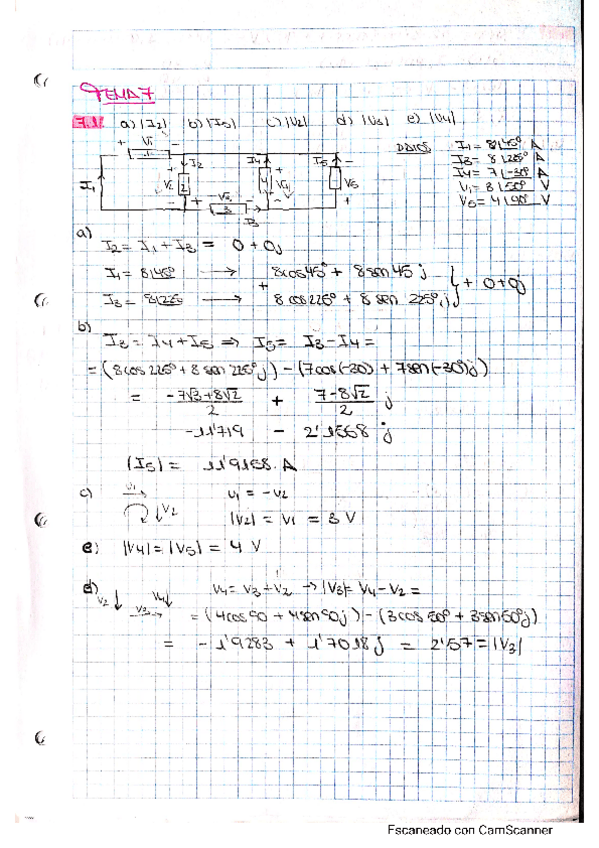 TEMA 7
7.1 a) |I2| b) |I5| c) |V2| d) |V3| e) |V4|
DATOS I1 = 8∠45° A
I3 = 8∠225° A
I4 = 7∠-30° A
V1 = 3∠50° V
V5 = 4∠90° V
+ V1 -
I1
1
I2
V2
2
- V3 +
3
I3
I4
4
V4
I5
V5
a)
I2 = I1 + I3 = 0 + 0j
I1 = 8∠45° → 8cos45° + 8sen45 j
+ 0+0j
I3 = 8∠225 → 8cos225° + 8sen 225° j
b)
I3 = I4 + I5 ⇒ I5 = I3 - I4 =
= (8cos225° + 8sen225°j) - (7cos(-30) + 7sen(-30°)j)
= -7√3+8√2 / 2 + 7-8√2 / 2 j
-11'719 - 2'1568 j
|I5| = 11'9158 A
c) V1 V2 V1 = -V2
|V2| = V1 = 3 V
e) |V4| = |V5| = 4 V
d) V2 V3 V4 V4 = V3 + V2 → |V3| = V4 - V2 =
= (4cos90 + 4sen90j) - (3cos50° + 3sen50°j)
= -1'9283 + 1'7018j = 2'57 = |V3|
Escaneado con CamScanner